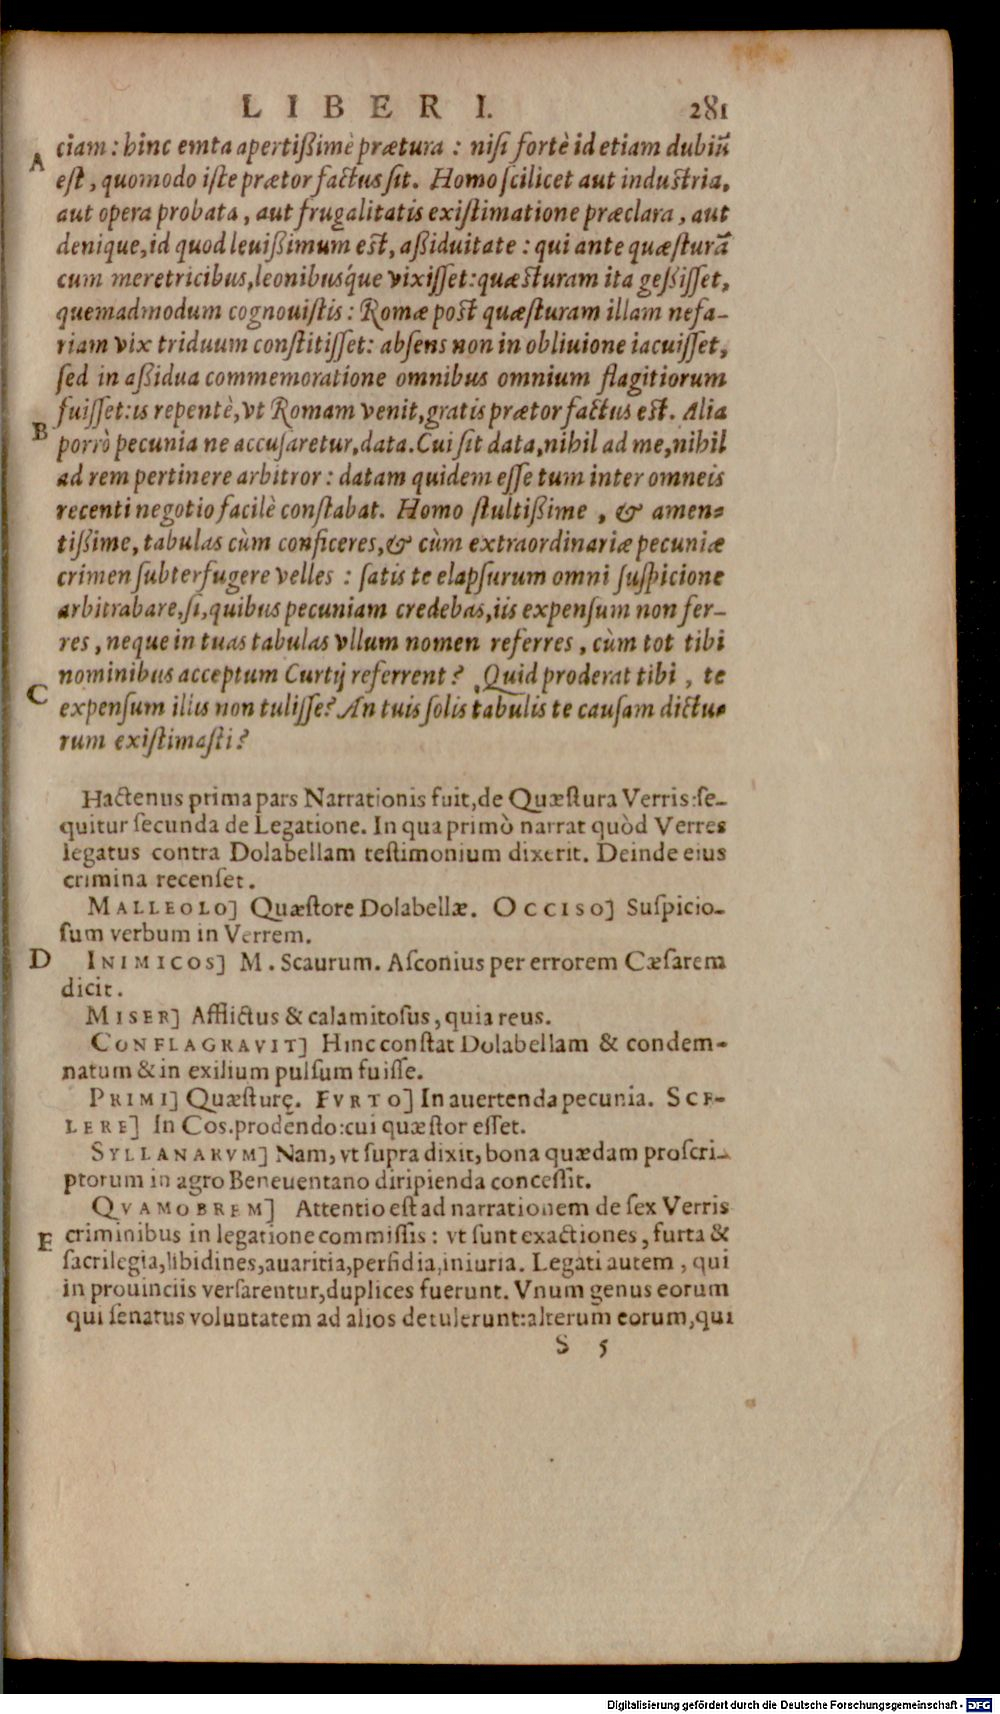 LIBER I. 281
A ciam: hinc emta apertißimè prætura: nisi fortè id etiam dubiũ
est, quomodo iste prætor factus sit. Homo scilicet aut industria,
aut opera probata, aut frugalitatis existimatione præclara, aut
denique, id quod leuißimum est, aßiduitate: qui ante quæsturã
cum meretricibus, leonibusq́ue vixisset: quæsturam ita geßisset,
quemadmodum cognouistis: Romæ post quæsturam illam nefa-
riam vix triduum constitisset: absens non in obliuione iacuisset,
sed in aßidua commemoratione omnibus omnium flagitiorum
fuisset: is repentè, vt Romam venit, gratis prætor factus est. Alia
B porrò pecunia ne accusaretur, data. Cui sit data, nihil ad me, nihil
ad rem pertinere arbitror: datam quidem esse tum inter omneis
recenti negotio facilè constabat. Homo stultißime, & amen-
tißime, tabulas cùm conficeres, & cùm extraordinariæ pecuniæ
crimen subterfugere velles: satis te elapsurum omni suspicione
arbitrabare, si, quibus pecuniam credebas, iis expensum non fer-
res, neque in tuas tabulas vllum nomen referres, cùm tot tibi
nominibus acceptum Curtij referrent? Quid proderat tibi, te
C expensum illis non tulisse? An tuis solis tabulis te causam dictu-
rum existimasti?
Hactenus prima pars Narrationis fuit, de Quæstura Verris: se-
quitur secunda de Legatione. In qua primò narrat quòd Verres
legatus contra Dolabellam testimonium dixerit. Deinde eius
crimina recenset.
MALLEOLO] Quæstore Dolabellæ. OCCISO] Suspicio-
sum verbum in Verrem.
D INIMICOS] M. Scaurum. Asconius per errorem Cæsarem
dicit.
MISER] Afflictus & calamitosus, quia reus.
CONFLAGRAVIT] Hinc constat Dolabellam & condem-
natum & in exilium pulsum fuisse.
PRIMI] Quæsturę. FVRTO] In auertenda pecunia. SCE-
LERE] In Cos. prodendo: cui quæstor esset.
SYLLANARVM] Nam, vt supra dixit, bona quædam proscri-
ptorum in agro Beneuentano diripienda concessit.
QVAMOBREM] Attentio est ad narrationem de sex Verris
E criminibus in legatione commissis: vt sunt exactiones, furta &
sacrilegia, libidines, auaritia, perfidia, iniuria. Legati autem, qui
in prouinciis versarentur, duplices fuerunt. Vnum genus eorum
qui senatus voluntatem ad alios detulerunt: alterum eorum, qui
S 5
Digitalisierung gefördert durch die Deutsche Forschungsgemeinschaft - DFG